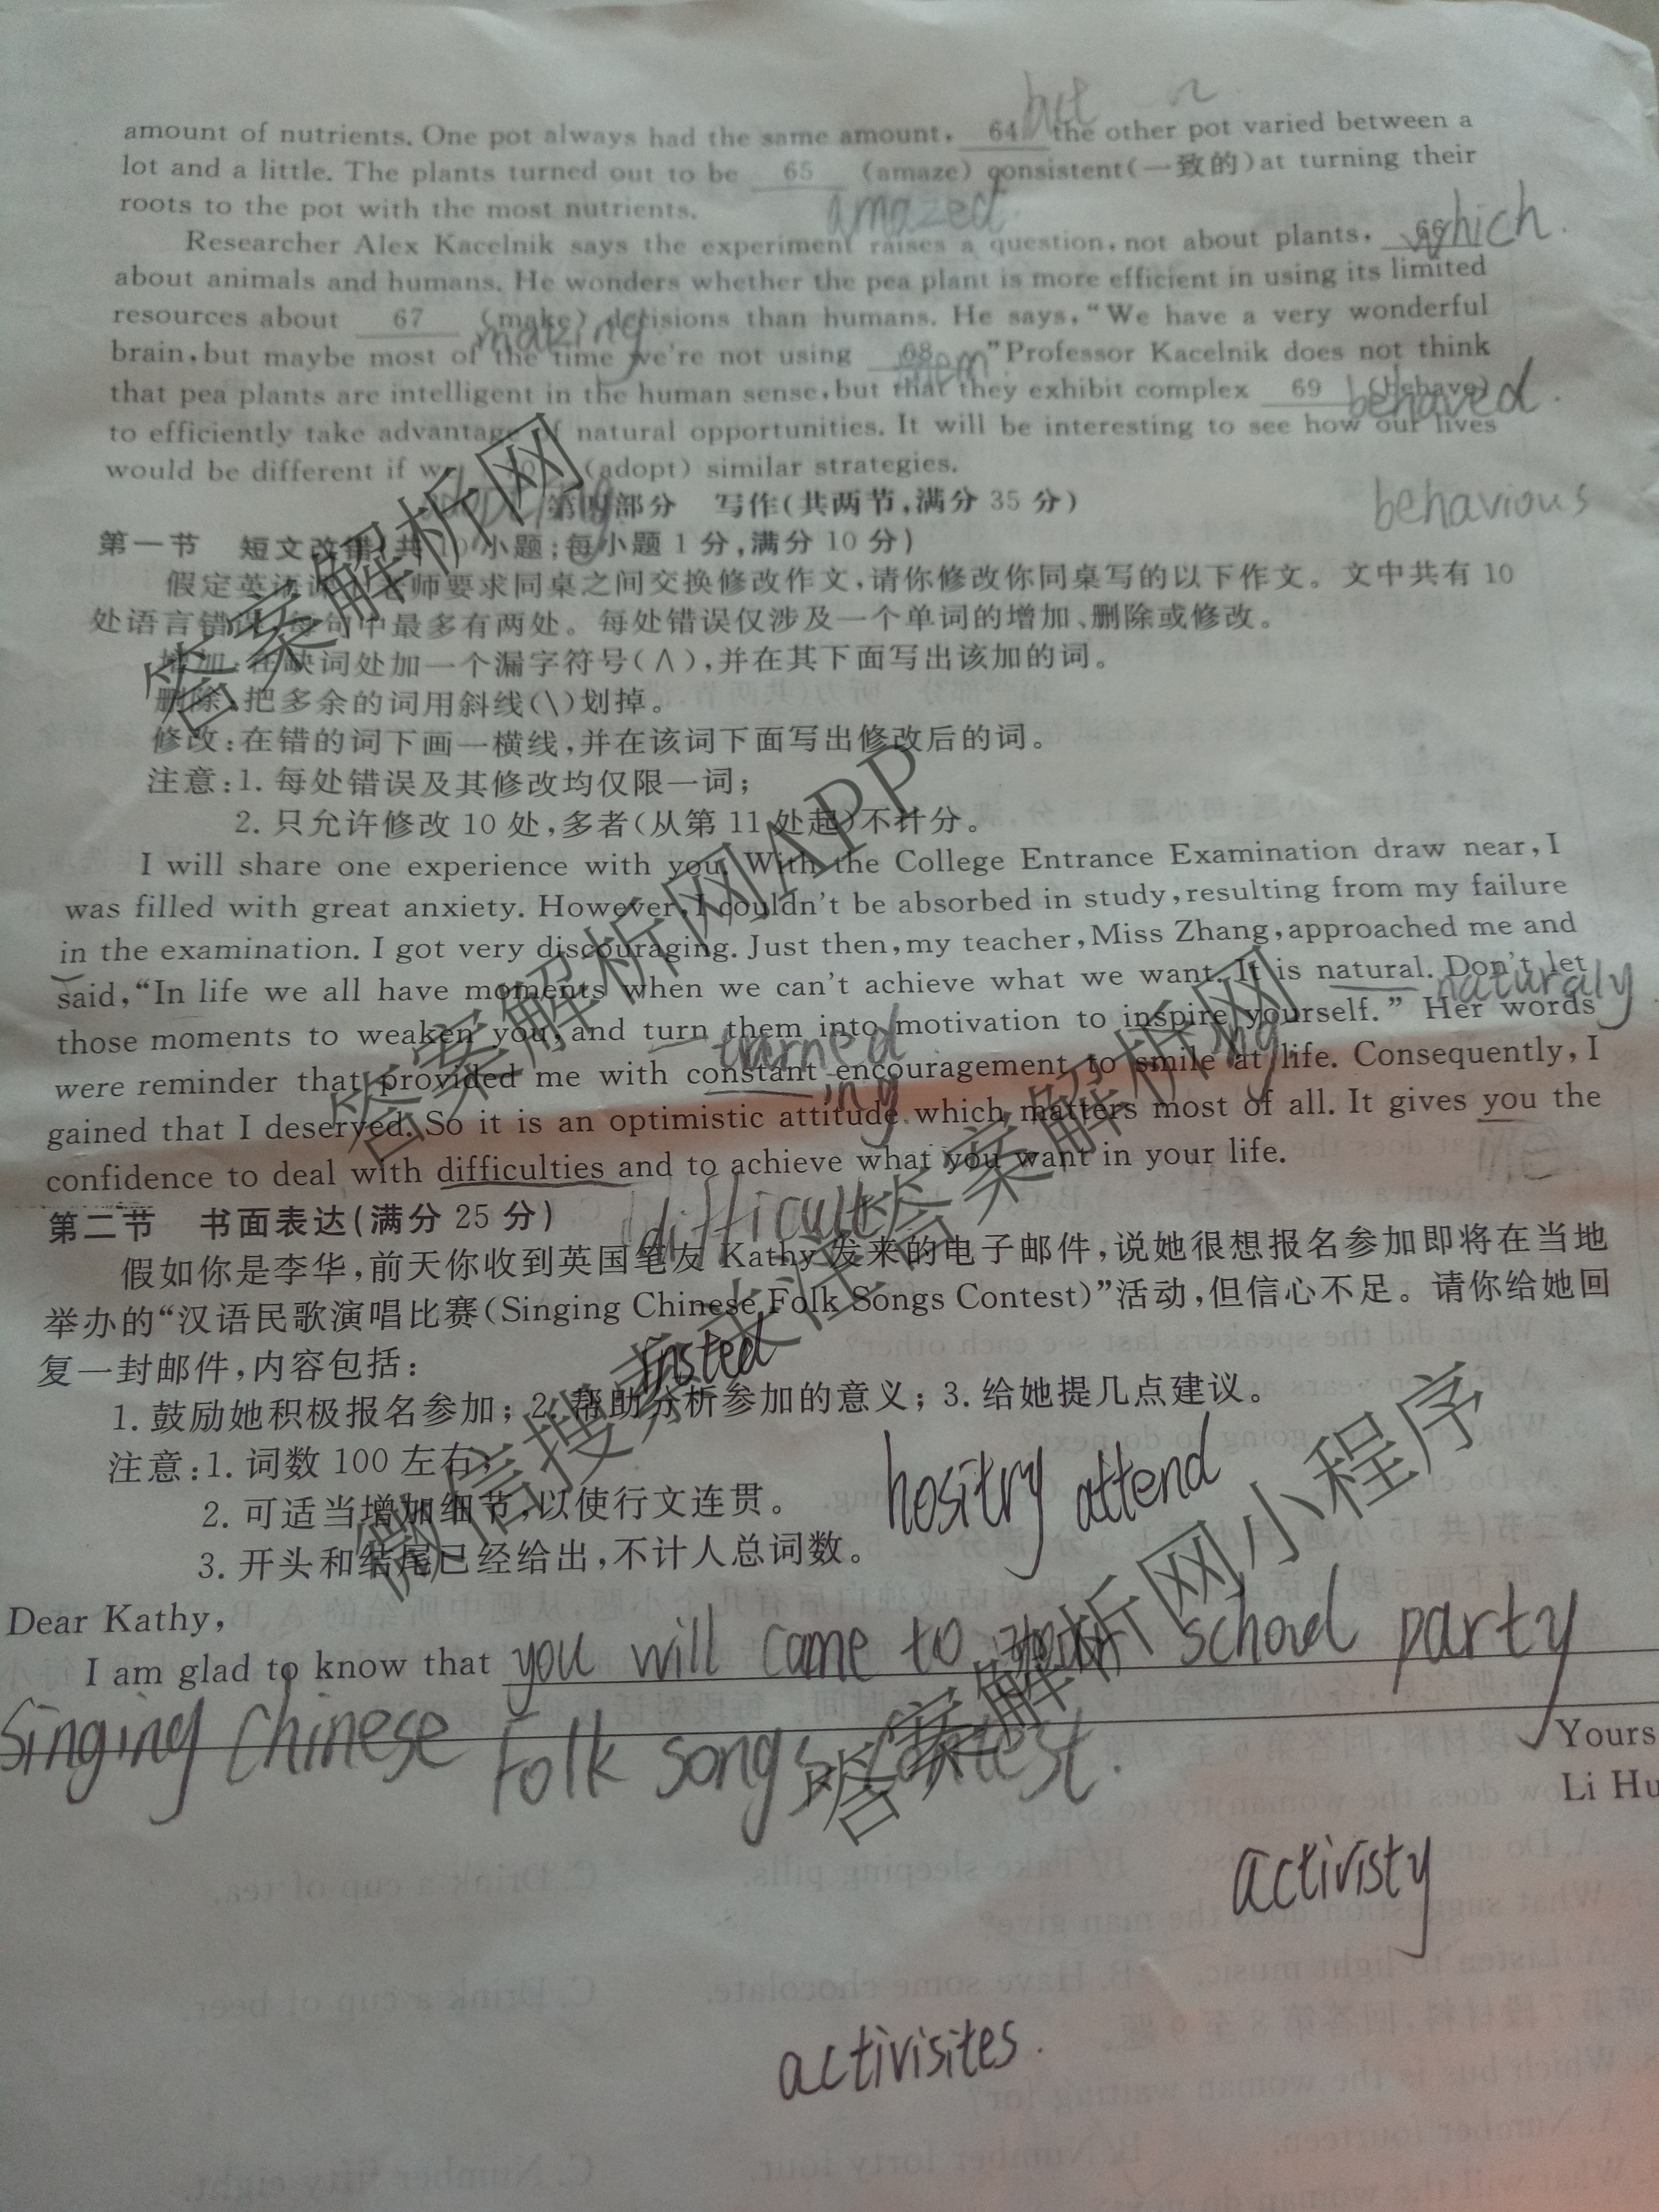 but
amount of nutrients. One pot always had the same amount, 64 the other pot varied between a
lot and a little. The plants turned out to be 65 (amaze) consistent(一致的)at turning their
amazed
roots to the pot with the most nutrients.
Researcher Alex Kacelnik says the experiment raises a question, not about plants, 66 which.
about animals and humans. He wonders whether the pea plant is more efficient in using its limited
resources about 67 (make) decisions than humans. He says,"We have a very wonderful
making
brain, but maybe most of the time we're not using 68 ."Professor Kacelnik does not think
them
that pea plants are intelligent in the human sense, but that they exhibit complex 69 (behave)
behaved.
to efficiently take advantage of natural opportunities. It will be interesting to see how our lives
would be different if we 70 (adopt) similar strategies.
behavious
第四部分 写作(共两节,满分 35 分)
第一节 短文改错(共 10 小题;每小题 1 分,满分 10 分)
假定英语课上老师要求同桌之间交换修改作文,请你修改你同桌写的以下作文。文中共有 10
处语言错误,每句中最多有两处。每处错误仅涉及一个单词的增加、删除或修改。
增加:在缺词处加一个漏字符号(∧),并在其下面写出该加的词。
删除:把多余的词用斜线(\)划掉。
修改:在错的词下画一横线,并在该词下面写出修改后的词。
注意:1. 每处错误及其修改均仅限一词;
2. 只允许修改 10 处,多者(从第 11 处起)不计分。
I will share one experience with you. With the College Entrance Examination draw near, I
was filled with great anxiety. However, I couldn't be absorbed in study, resulting from my failure
in the examination. I got very discouraging. Just then, my teacher, Miss Zhang, approached me and
said,"In life we all have moments when we can't achieve what we want. It is natural. Don't let
naturaly
those moments to weaken you, and turn them into motivation to inspire yourself." Her words
turned ing.
were reminder that provided me with constant encouragement to smile at life. Consequently, I
ing
gained that I deserved. So it is an optimistic attitude which matters most of all. It gives you the
me
confidence to deal with difficulties and to achieve what you want in your life.
difficult
第二节 书面表达(满分 25 分)
假如你是李华,前天你收到英国笔友 Kathy 发来的电子邮件,说她很想报名参加即将在当地
举办的“汉语民歌演唱比赛(Singing Chinese Folk Songs Contest)”活动,但信心不足。请你给她回
复一封邮件,内容包括:
insted
1. 鼓励她积极报名参加;2. 帮助分析参加的意义;3. 给她提几点建议。
注意:1. 词数 100 左右;
hositry attend
2. 可适当增加细节,以使行文连贯。
3. 开头和结尾已经给出,不计入总词数。
Dear Kathy,
I am glad to know that you will come to school party
Singing Chinese Folk songs Contest.
Yours
Li Hu
activisty
activisites.
答案解析网
答案解析网APP
答案解析网
微信搜索关注答案解析网
答案解析网小程序